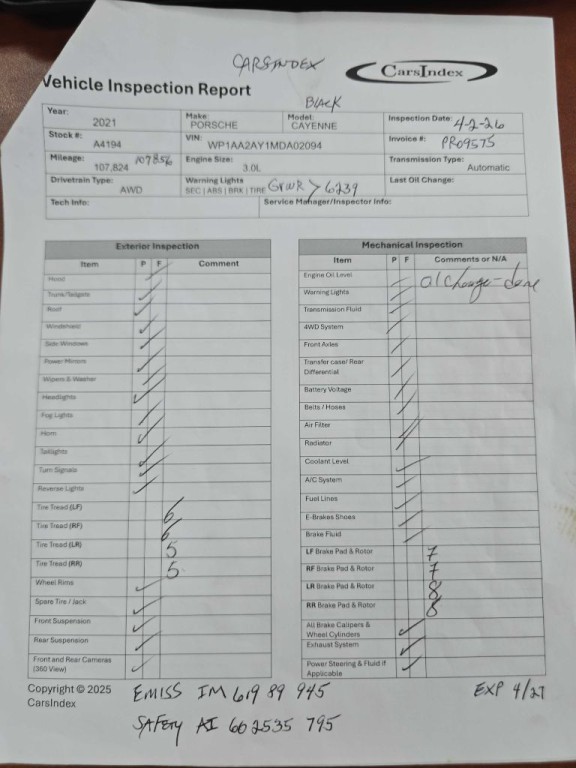 CARSINDEX
CarsIndex
Vehicle Inspection Report
BlACK
Year: 2021 Make: PORSCHE Model: CAYENNE Inspection Date: 4-2-26
Stock #: A4194 VIN: WP1AA2AY1MDA02094 Invoice #: PR09575
Mileage: 107,824 107856 Engine Size: 3.0L Transmission Type: Automatic
Drivetrain Type: AWD Warning Lights SEC | ABS | BRK | TIRE GVWR > 6239 Last Oil Change:
Tech Info: Service Manager/Inspector Info:
Exterior Inspection
Item P F Comment
Hood
Trunk/Tailgate
Roof
Windshield
Side Windows
Power Mirrors
Wipers & Washer
Headlights
Fog Lights
Horn
Taillights
Turn Signals
Reverse Lights
Tire Tread (LF) 6
Tire Tread (RF) 6
Tire Tread (LR) 5
Tire Tread (RR) 5
Wheel Rims
Spare Tire / Jack
Front Suspension
Rear Suspension
Front and Rear Cameras
(360 View)
Mechanical Inspection
Item P F Comments or N/A
Engine Oil Level oil change - done
Warning Lights
Transmission Fluid
4WD System
Front Axles
Transfer case/ Rear
Differential
Battery Voltage
Belts / Hoses
Air Filter
Radiator
Coolant Level
A/C System
Fuel Lines
E-Brakes Shoes
Brake Fluid
LF Brake Pad & Rotor 7
RF Brake Pad & Rotor 7
LR Brake Pad & Rotor 8
RR Brake Pad & Rotor 8
All Brake Calipers &
Wheel Cylinders
Exhaust System
Power Steering & Fluid if
Applicable
Copyright © 2025
CarsIndex
EMISS IM 619 89 945 EXP 4/27
SAFETY AI 602535 795